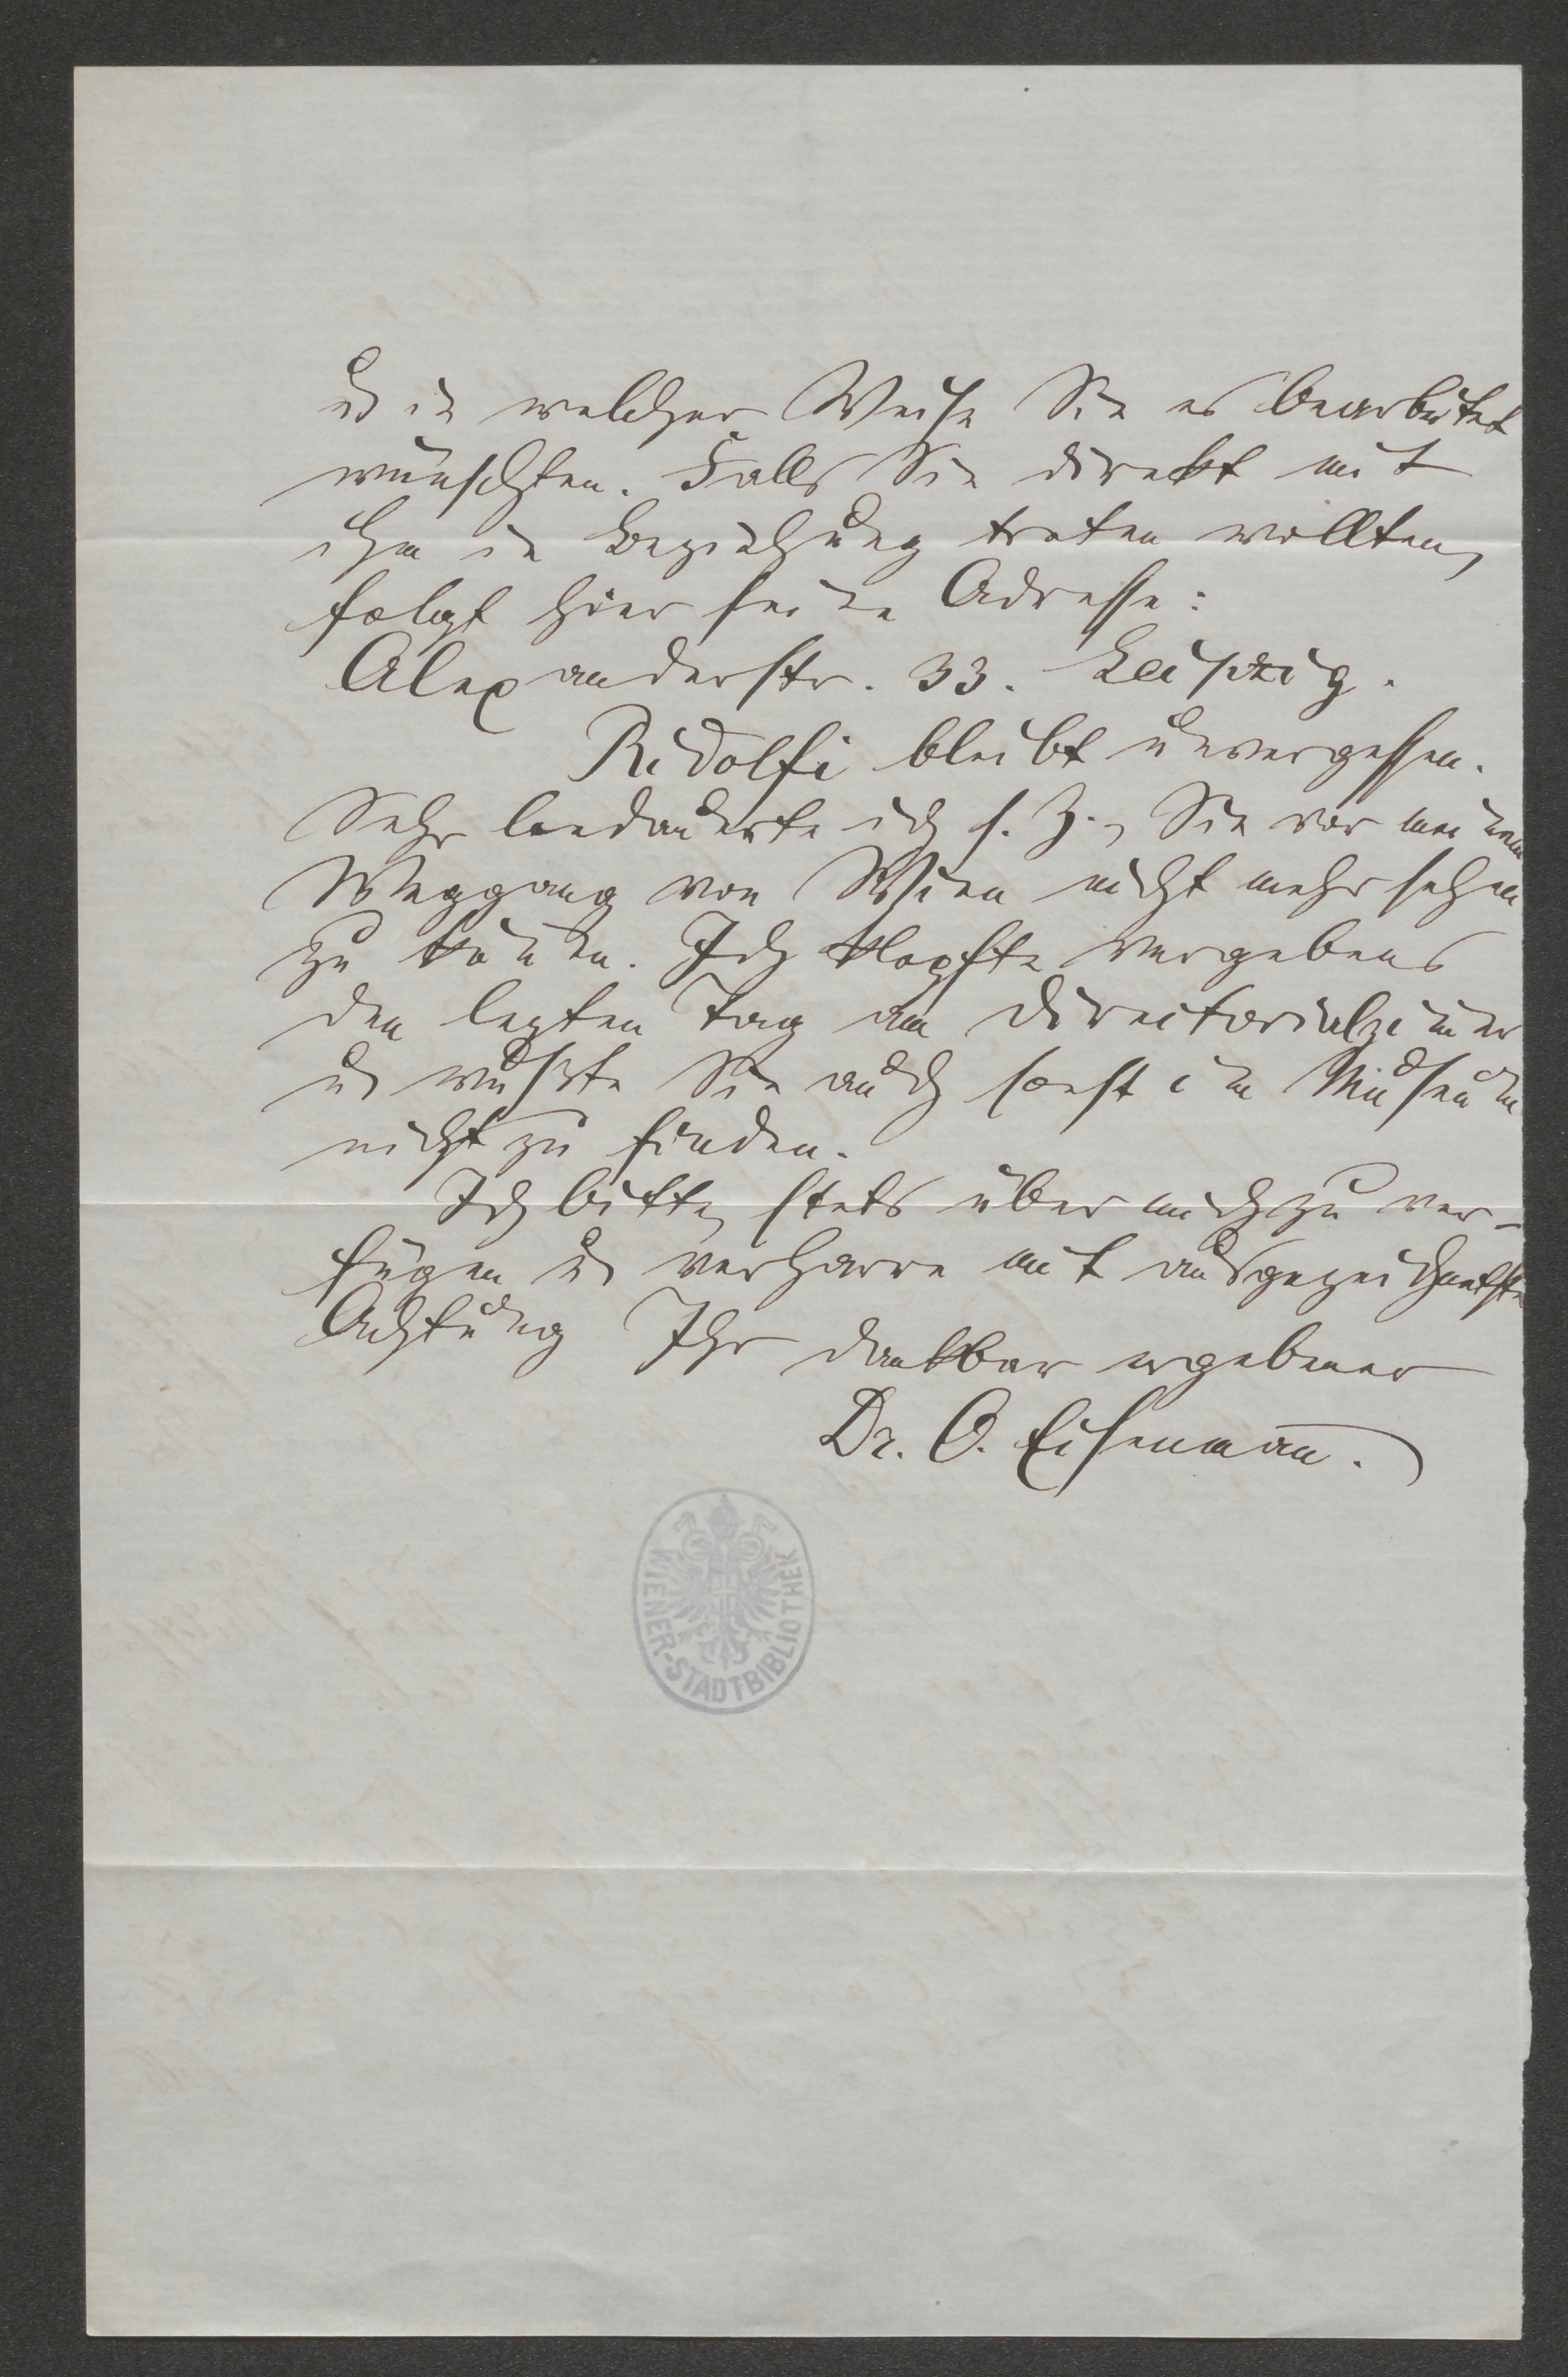 u in welcher Weise Sie es bearbeitet
wünschten. Falls Sie direkt mit
ihm in Beziehung treten wollten,
folgt hier seine Adresse:
Alexanderstr. 33. Leipzig.
Ridolfi bleibt unvergessen.
Sehr bedauerte ich s. Z., Sie vor meinem
Weggang von Wien nicht mehr sehen
zu können. Ich klopfte vergebens
den lezten Tag am Directorialzimer
u wußte Sie auch sonst im Museum
nicht zu finden.
Ich bitte, stets über mich zu ver-
fügen u verharre mit ausgezeichnetster
Achtung Ihr dankbar ergebener
Dr. O. Eisenmann.
WIENER-STADTBIBLIOTHEK